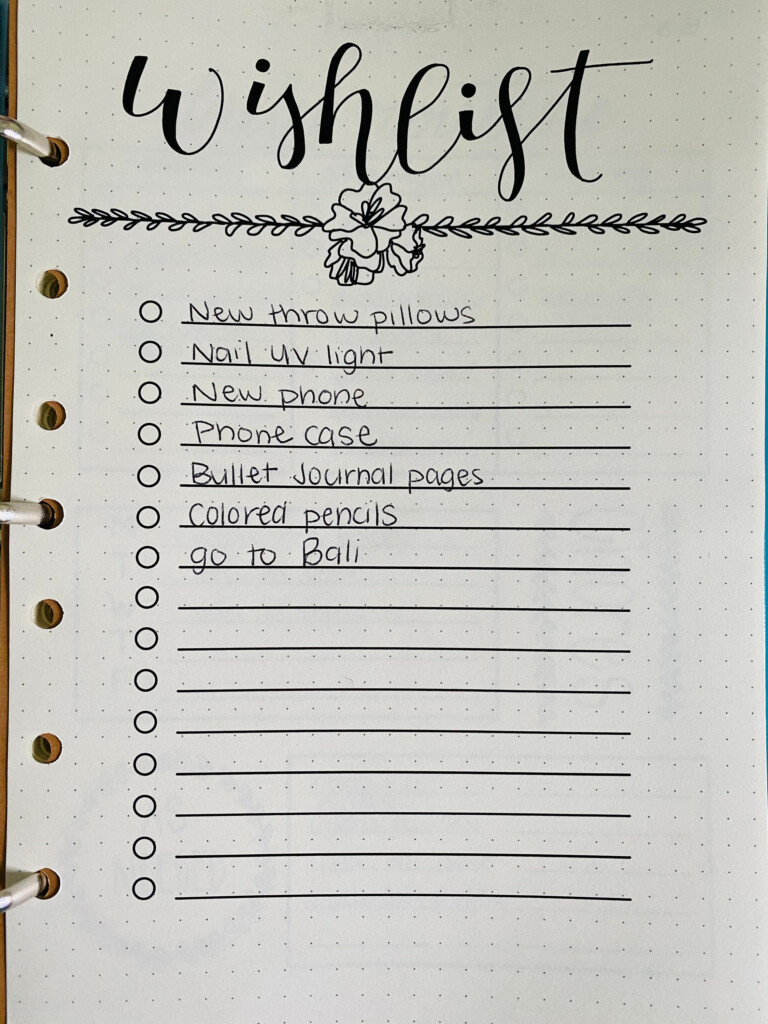 Wishlist
New throw pillows
Nail UV light
New phone
Phone case
Bullet Journal pages
Colored pencils
go to Bali